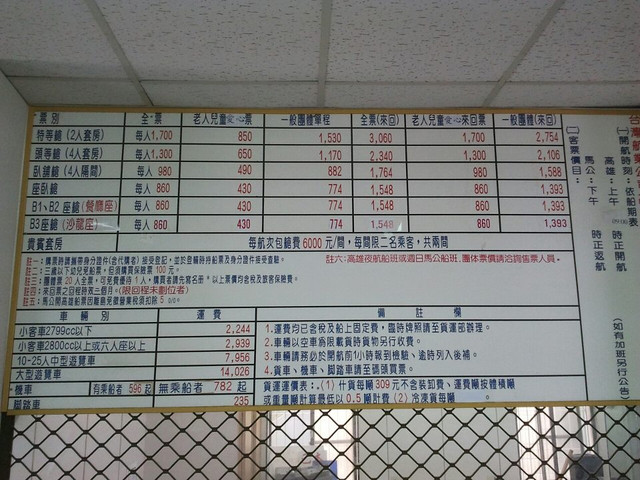 票別 全票 老人兒童愛心票 一般團體單程 全票(來回) 老人兒童愛心來回票 一般團體(來回)
特等艙(2人套房) 每人1,700 850 1,530 3,060 1,700 2,754
頭等艙(4人套房) 每人1,300 650 1,170 2,340 1,300 2,106
臥舖艙(4人隔間) 每人 980 490 882 1,764 980 1,588
座臥艙 每人 860 430 774 1,548 860 1,393
B1、B2 座艙(餐廳座) 每人 860 430 774 1,548 860 1,393
B3座艙(沙龍座) 每人 860 430 774 1,548 860 1,393
貴賓套房 每航次包艙費 6000 元/間,每間限二名乘客,共兩間
註一:購票時請攜帶身分證件(含代購者)接受登記,並於登輪時持船票及身分證件接受查驗。
註二:三歲以下幼兒免船票,但須購買保險票 100 元。
註三:團體票 20 人全票,可免費優待 1 人,購買者請先寫名冊 *以上票價均含稅及旅客保險費。
註四:來回票之回程時效三個月。(限回程未劃位者)
註五:馬公開高雄船票因離島免徵營業稅須扣除 5 %。
註六:高雄夜航船班或週日馬公船班,團体票價請洽詢售票人員。
車輛別 運費 備註欄
小客車2799cc以下 2,244
小客車2800cc以上或六人座以上 2,939
10-25人中型遊覽車 7,956
大型遊覽車 14,026
機車 有乘船者 596 起 無乘船者 782 起
腳踏車 235
1.運費均已含稅及船上固定費,臨時牌照請至貨運部辦理。
2.車輛以空車為限載貨時貨物另行收費。
3.車輛請務必於開航前1小時報到檢驗、逾時列入後補。
4.貨車、機車、腳踏車請至碼頭買票。
貨運運價表:.(1) 什貨每噸309元不含裝卸費、運費噸按體積噸
或重量噸計算最低以0.5噸計費 (2) 冷凍貨每噸
台灣航業公司
(一)開航時刻:依船期表
高雄:上午 時正開航
馬公:下午 時正返航
(如有加班另行公告)
(二)客票價目: